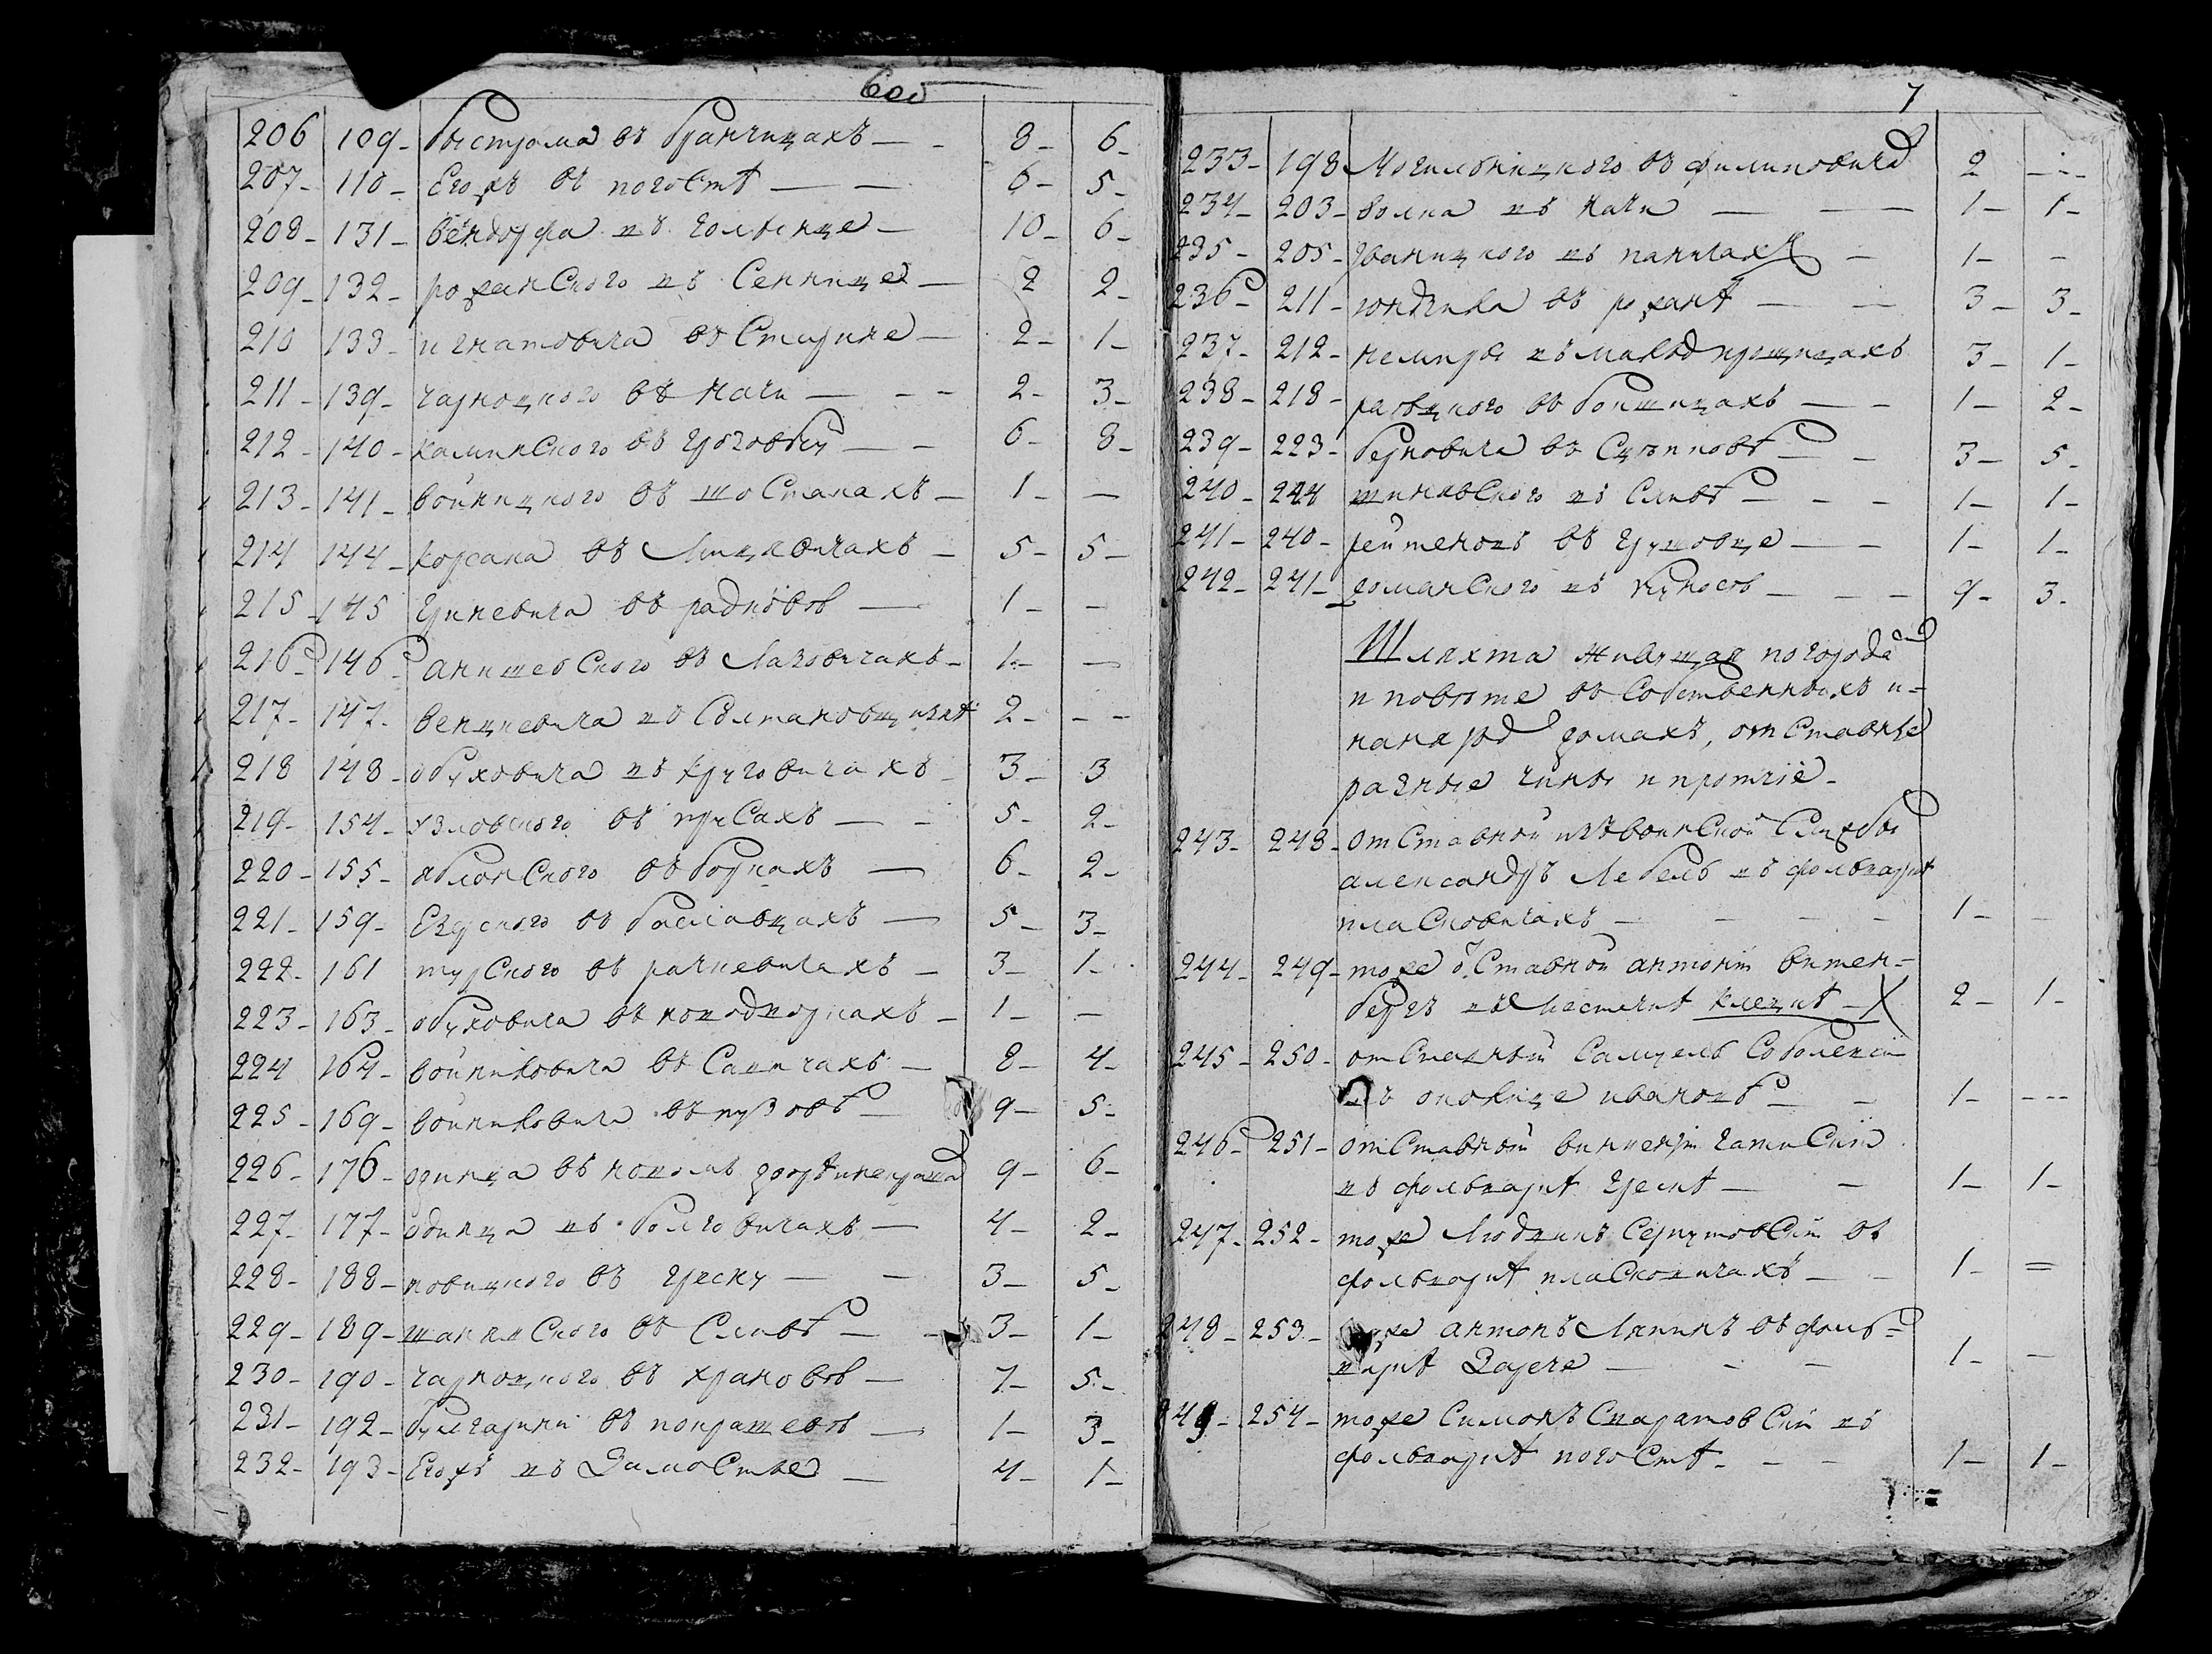 600
206 109 Быстрома въ Бранчицахъ 8 6
207 110 Еюжъ въ погостѣ 6 5
208 131 Бендорфа въ Голынце 10 6
209 132 рожанского въ Сеннице 2 2
210 133 игнатовича въ Старине 2 1
211 139 чарноцкого въ начи 2 3
212 140 каминского въ 6 8
213 141 войницкого въ шостаках 1 —
214 144 корсака въ Мицкевичахъ 5 5
215 145 Гриневича въ радковѣ 1 —
216 146 анишевского въ Лазовичахъ 1 —
217 147 венцкевича въ Солтановщизнѣ 2 —
218 148 обуховича въ круговичахъ 3 3
219 154 узловского въ прусахъ 5 2
220 155 яблонского въ боркахъ 6 2
221 159 Езерского въ баславцахъ 5 3
222 161 турского въ рачкевичахъ 3 1
223 163 обуховича въ новодворкахъ 1 —
224 164 войниловича въ Савичахъ 8 4
225 169 войниловича въ пузовѣ 9 5
226 176 одинца въ новомъ дворѣ 9 6
227 177 одинца въ болговичахъ 4 2
228 188 новицкого въ греску 3 5
229 189 шанявского въ Сливѣ 3 1
230 190 чарноцкого въ крановѣ 7 5
231 192 булгарина въ покрашевѣ 1 3
232 193 Еюжъ въ Замостье 4 1
7
233 198 Могильницкого въ филиповичах 2 —
234 203 волка въ начи 1 1
235 205 Иваницкого въ паничахъ 1 —
236 211 юндзила въ рожанѣ 3 3
237 212 немиры въ 3 1
238 218 раевцкого въ боишицахъ 1 2
239 223 берновича въ Цепковѣ 3 5
240 224 шинявского въ Сливѣ 1 1
241 240 рейтеновъ въ грушовце 1 1
242 241 доманского въ кукосовѣ 9 3
Шляхта живущая погорода
и повѣте въ Собственныхъ и
нанятыхъ домахъ, отставные
разные чины и протчіе
243 248 отставной изъ воинской Службы
александръ Лебель въ фольваркѣ
пласковичахъ 1 —
244 249 тоже отставной антоній витен-
бергъ въ местечкѣ клецкѣ Х 2 1
245 250 отставный Самуель Соболевскій
въ околице ивановѣ 1 —
246 251 отставный винцентій
въ фольваркѣ грескѣ 1 1
247 252 тоже Людвикъ Серпутовскій въ
фольваркѣ пласковичахъ 1 =
248 253 тоже антонъ Липинъ въ фоль-
варкѣ Заречье 1 —
249 254 тоже Симонъ Скаратовскій въ
фольваркѣ погостѣ 1 1